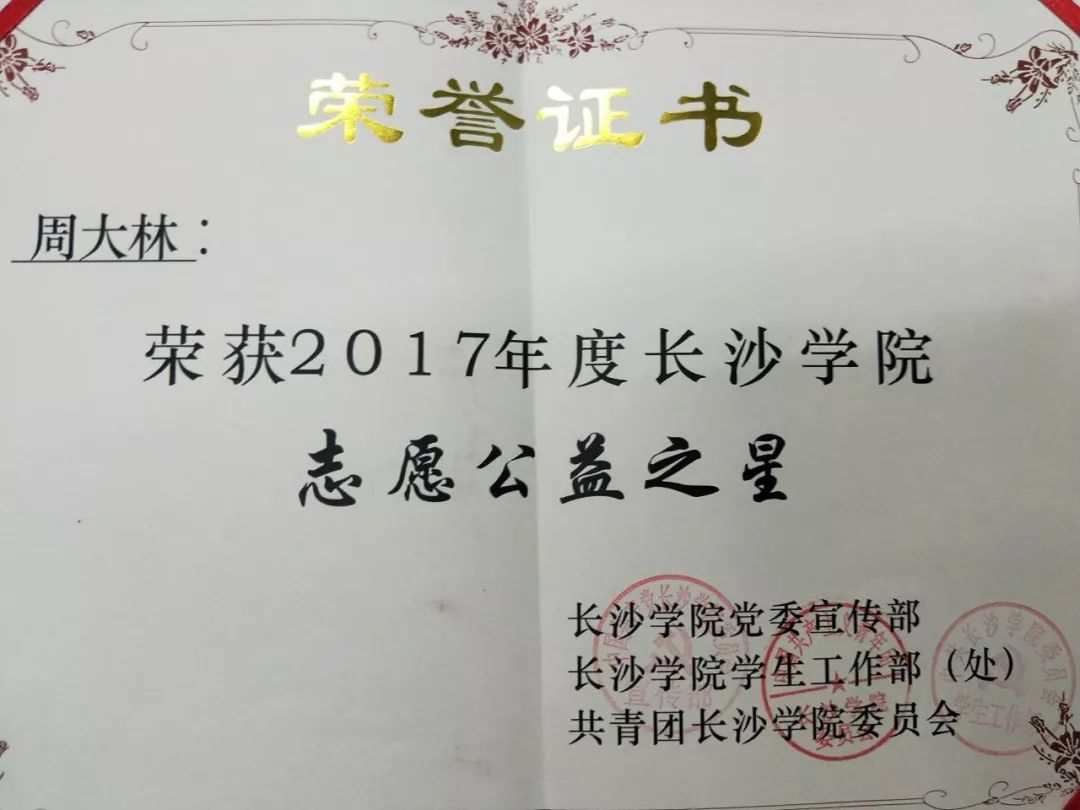 荣誉证书
周大林：
荣获2017年度长沙学院
志愿公益之星
长沙学院党委宣传部
长沙学院学生工作部（处）
共青团长沙学院委员会
宣传部
长沙学院
委员会